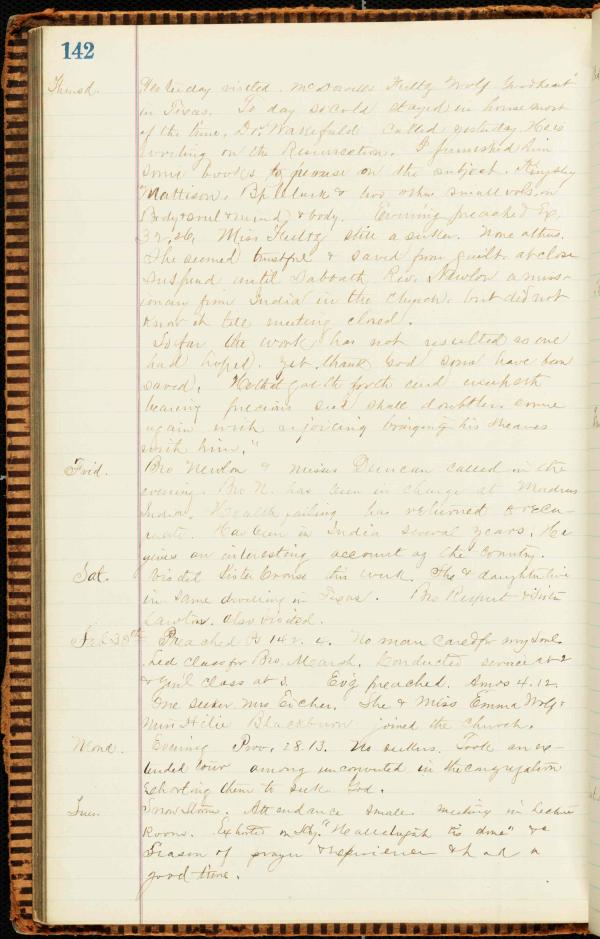 142
Thursd. Yesterday visited. McDaniells Feltz Wolf Goodheart
in Texas. To day so cold stayed in house most
of the time, Dr. Wakefield called yesterday. He is
working on the Resurrection. I furnished him
some books to peruse on the subject. Kingsley
Mattison, Bp Clark & two other small vols. on
Body & soul & mind & body. Evening preached Ex.
32.26. Miss Feltz still a seeker. None others.
She seemed trustful & saved from guilt. at close
suspend until Sabbath, Rev. Newlon a miss-
ionary from India in the church. but did not
know it till meeting closed.
So far the work has not resulted as one
had hoped. yet thank God some have been
saved. He that goeth forth and weepeth
bearing precious seed shall doubtless come
again with rejoicing bringing his sheaves
with him."
Frid. Bro Newlon & misses Duncan called in the
evening. Bro N. has been in charge at Madras
India. Health failing has returned to recu-
perate. Has been in India several years. He
gives an interesting account of the country.
Sat. Visited Sister Crouse this week. She & daughter live
in same dwelling in Texas. Bro & Sister
Lawton. also visited.
Preached Ps 142. 4. No man cared for my soul.
Led class for Bro. Marsh. Conducted service at 2
& Girl class at 3. Ev'g preached. Amos 4.12.
One seeker Mrs Eicher. She & Miss Emma Wolf &
Miss Blackburn joined the church.
Mond. Evening Prov. 28.13. No seekers. Took an ex-
tended tour among unconverted in the congregation
exhorting them to seek God.
Tues. Snow Storm. Attendance small meeting in Lecture
Room. Exhorted on Hy. "Hallelujah tis done" &
Season of prayer & experience & had a
good time.